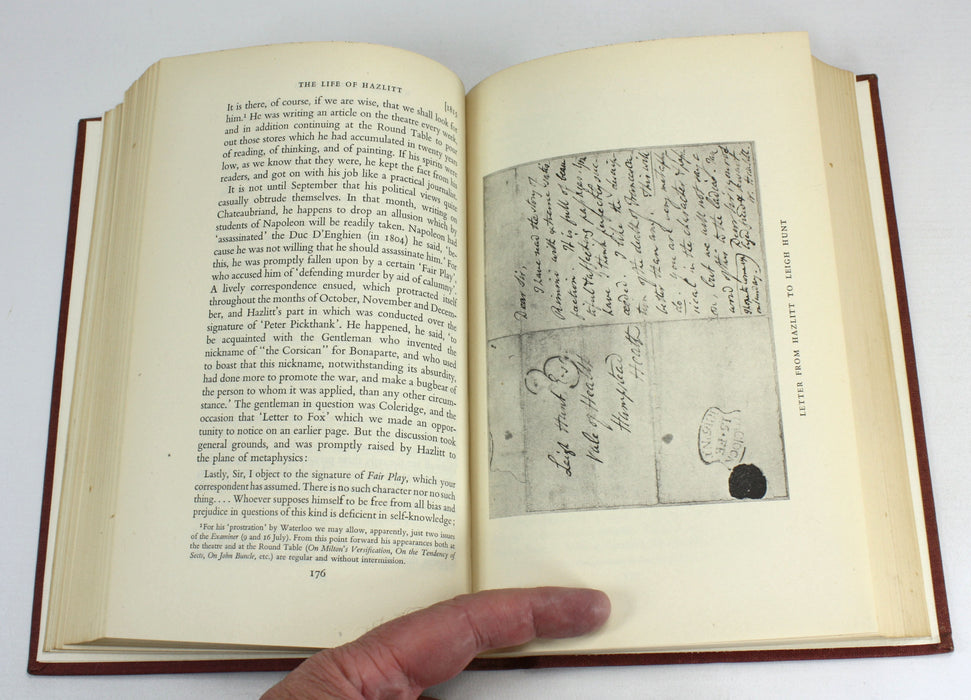 THE LIFE OF HAZLITT
[1815
It is there, of course, if we are wise, that we shall look for
him.¹ He was writing an article on the theatre every week,
and in addition continuing at the Round Table to pour
out those stores which he had accumulated in twenty years
of reading, of thinking, and of painting. If his spirits were
low, as we know that they were, he kept the fact from his
readers, and got on with his job like a practical journalist.
It is not until September that his political views quite
casually obtrude themselves. In that month, writing on
Chateaubriand, he happens to drop an allusion which by
students of Napoleon will be readily taken. Napoleon had
'assassinated' the Duc D'Enghien (in 1804) he said, 'be-
cause he was not willing that he should assassinate him.' For
this, he was promptly fallen upon by a certain 'Fair Play',
who accused him of 'defending murder by aid of calumny'.
A lively correspondence ensued, which protracted itself
throughout the months of October, November and Decem-
ber, and Hazlitt's part in which was conducted over the
signature of 'Peter Pickthank'. He happened, he said, 'to
be acquainted with the Gentleman who invented the
nickname of "the Corsican" for Bonaparte, and who used
to boast that this nickname, notwithstanding its absurdity,
had done more to promote the war, and make a bugbear of
the person to whom it was applied, than any other circum-
stance.' The gentleman in question was Coleridge, and the
occasion that 'Letter to Fox' which we made an oppor-
tunity to notice on an earlier page. But the discussion took
general grounds, and was promptly raised by Hazlitt to
the plane of metaphysics:
Lastly, Sir, I object to the signature of Fair Play, which your
correspondent has assumed. There is no such character nor no such
thing.... Whoever supposes himself to be free from all bias and
prejudice in questions of this kind is deficient in self-knowledge;
¹For his 'prostration' by Waterloo we may allow, apparently, just two issues
of the Examiner (9 and 16 July). From this point forward his appearances both at
the theatre and at the Round Table (On Milton's Versification, On the Tendency of
Sects, On John Buncle, etc.) are regular and without intermission.
176
Dear Sir,
I have read the story of
Rimini with extreme satis-
faction. It is full of beau-
tiful & affecting passages. You
have I think perfectly suc-
ceeded. I like the
of the death of
better than any. This will
do. You are very
in the character &
, but we will not say a
word of this to the ladies.
W. Hazlitt
Leigh Hunt Esq
Vale of Health
Hampstead
Heath
LETTER FROM HAZLITT TO LEIGH HUNT